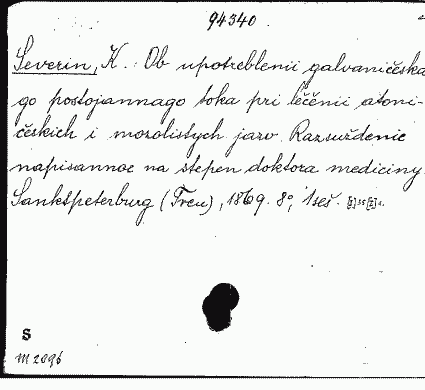 94340.
Severin, K.: Ob upotreblenii galvaničeska
go postojannago toka pri léčenii atoni-
českich i mozolistych jazv. Razsuždenie
napisannoe na stepen doktora mediciny.
Sanktpeterburg (Treu), 1869. 8°, 1seš.
S
M 2096